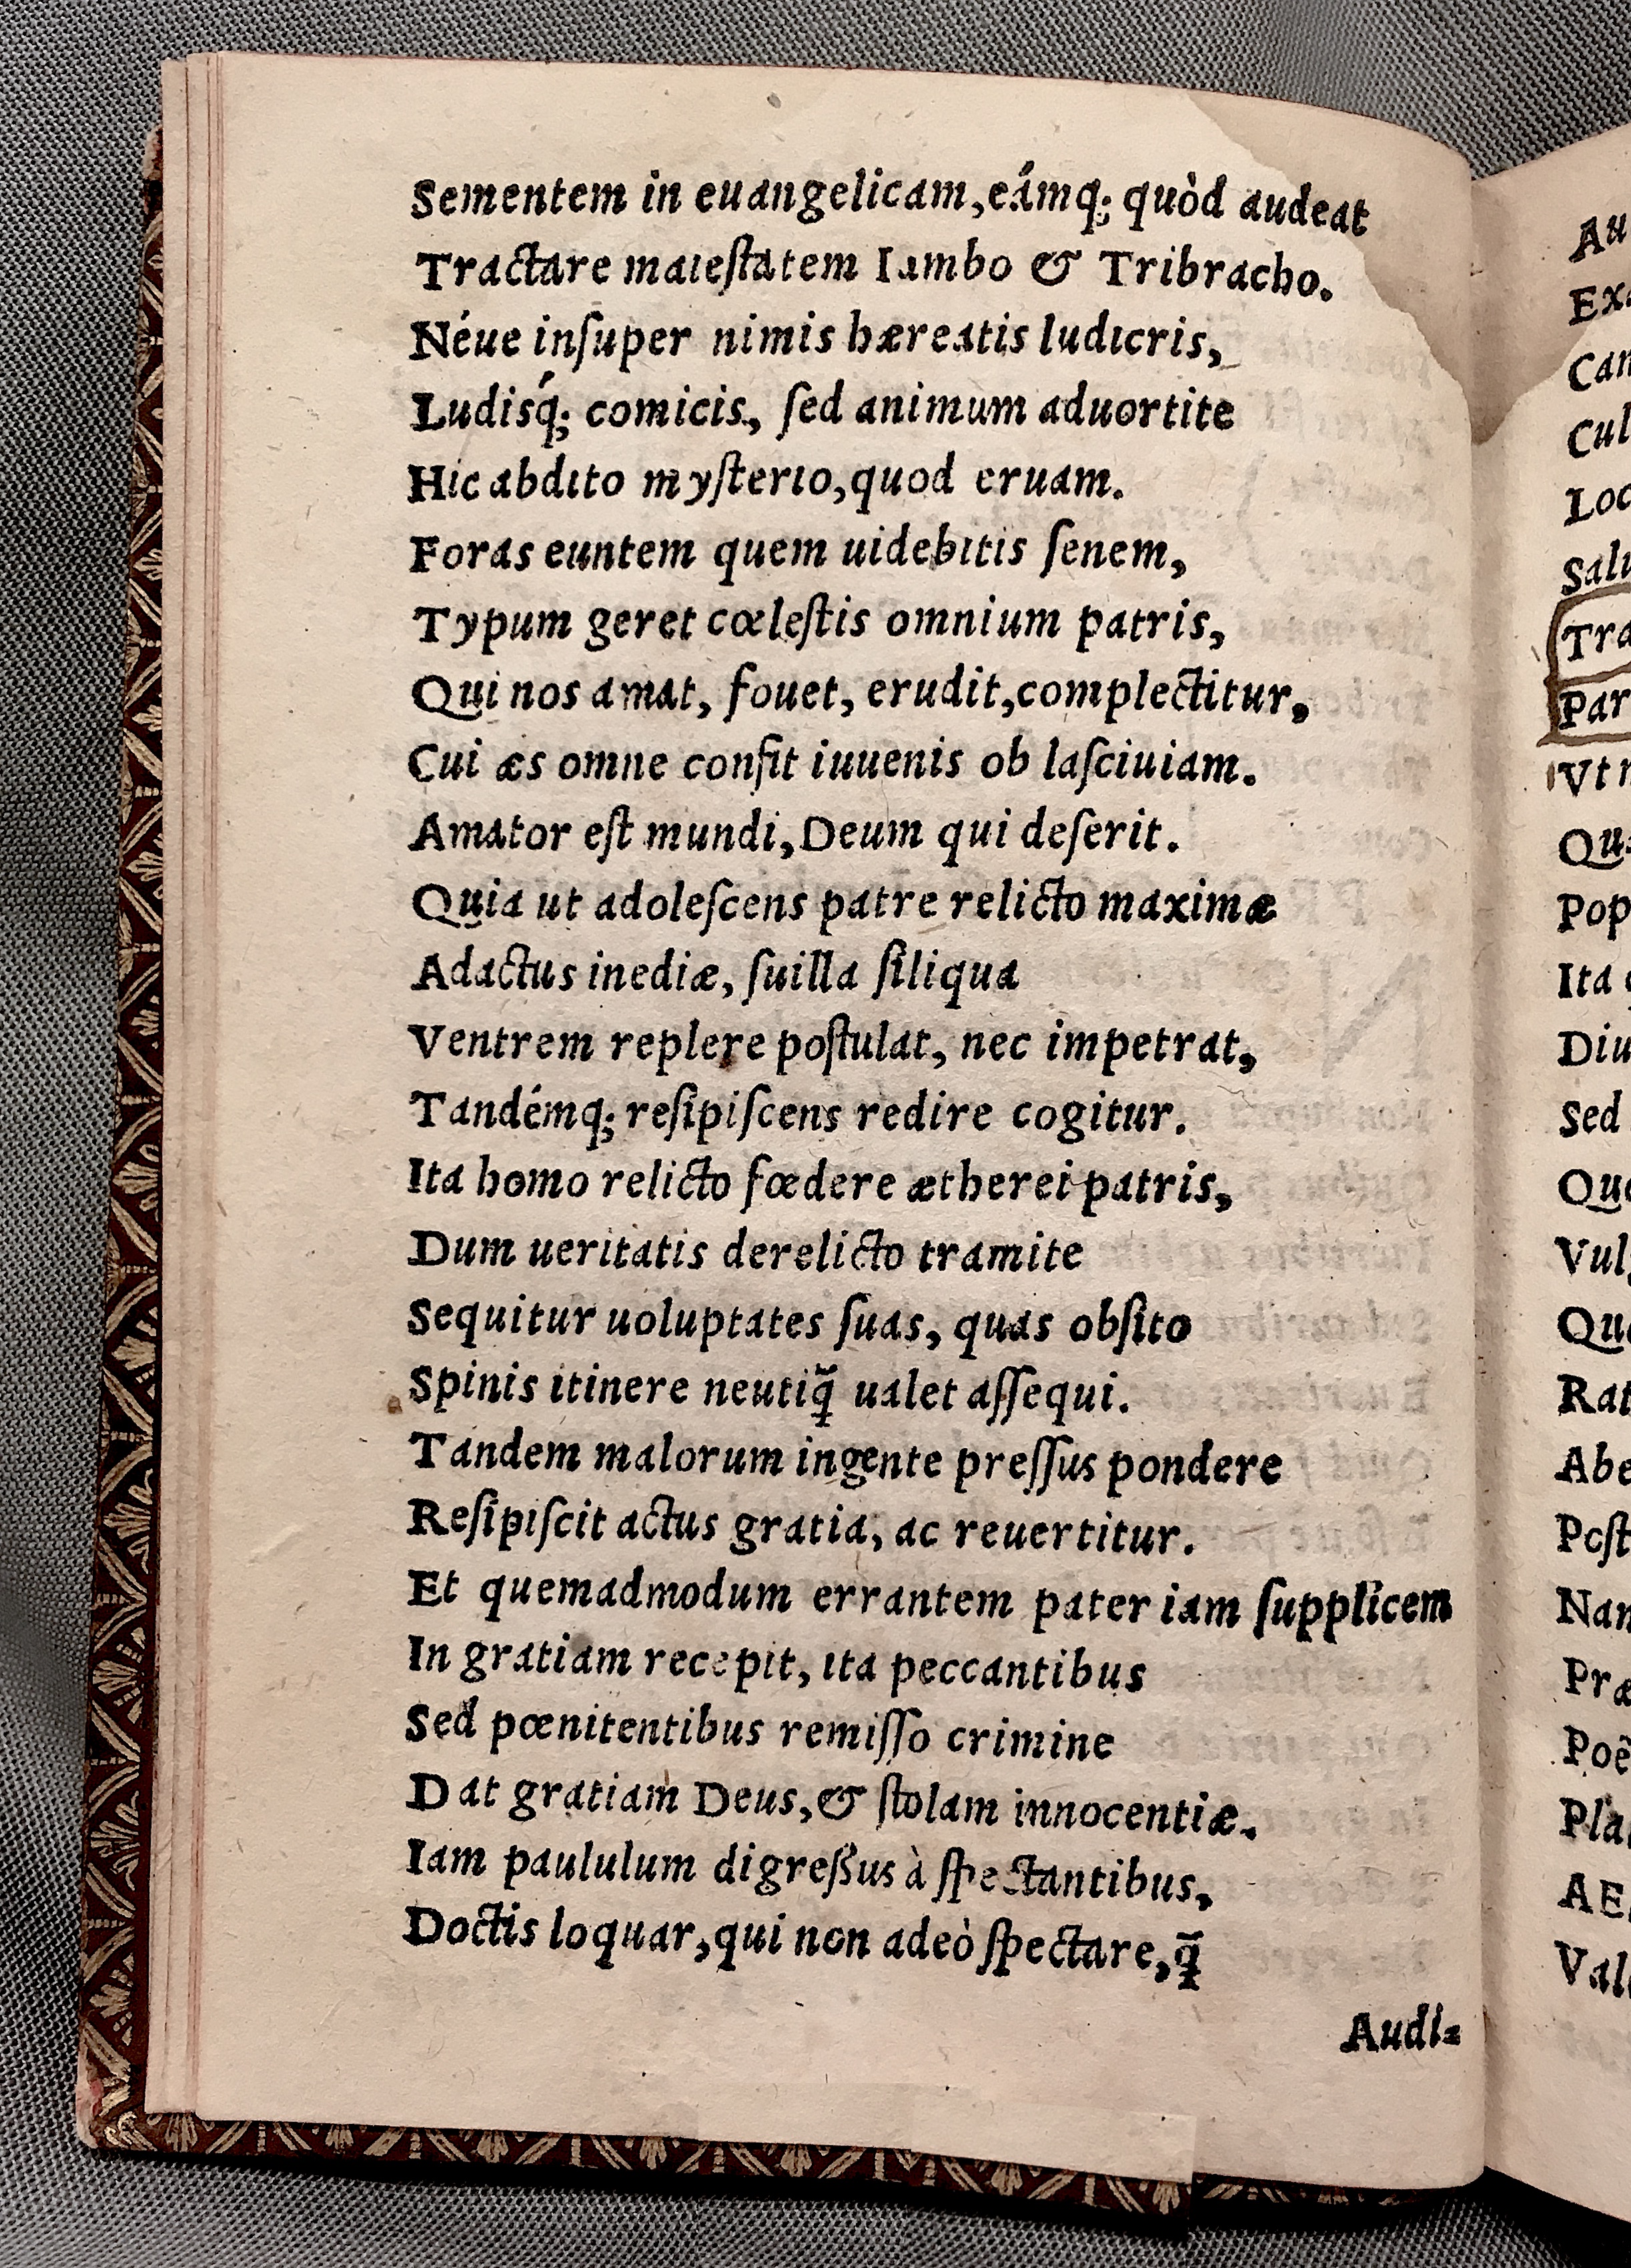 Sementem in euangelicam,eámq; quòd audeat
Tractare maiestatem Iambo & Tribracho.
Néue insuper nimis hæreatis ludicris,
Ludisq́; comicis, sed animum aduortite
Hic abdito mysterio,quod eruam.
Foras euntem quem uidebitis senem,
Typum geret cœlestis omnium patris,
Qui nos amat, fouet, erudit,complectitur,
Cui æs omne confit iuuenis ob lasciuiam.
Amator est mundi,Deum qui deserit.
Quia ut adolescens patre relicto maximæ
Adactus inediæ, suilla siliqua
Ventrem replere postulat, nec impetrat,
Tandémq; resipiscens redire cogitur.
Ita homo relicto fœdere ætherei patris,
Dum ueritatis derelicto tramite
Sequitur uoluptates suas, quas obsito
Spinis itinere neutiq̃ ualet assequi.
Tandem malorum ingente pressus pondere
Resipiscit actus gratia, ac reuertitur.
Et quemadmodum errantem pater iam supplicem
In gratiam recepit, ita peccantibus
Sed pœnitentibus remisso crimine
Dat gratiam Deus,& stolam innocentiæ.
Iam paululum digreßus à spectantibus,
Doctis loquar,qui non adeò spectare,q̃
Audi=
Au
Ex
Can
Cul
Loc
Salu
Tra
Par
Vt
Qu
Pop
Ita
Diu
Sed
Qu
Vul
Qu
Rat
Abe
Post
Nan
Præ
Poë
Pla
AE
Val